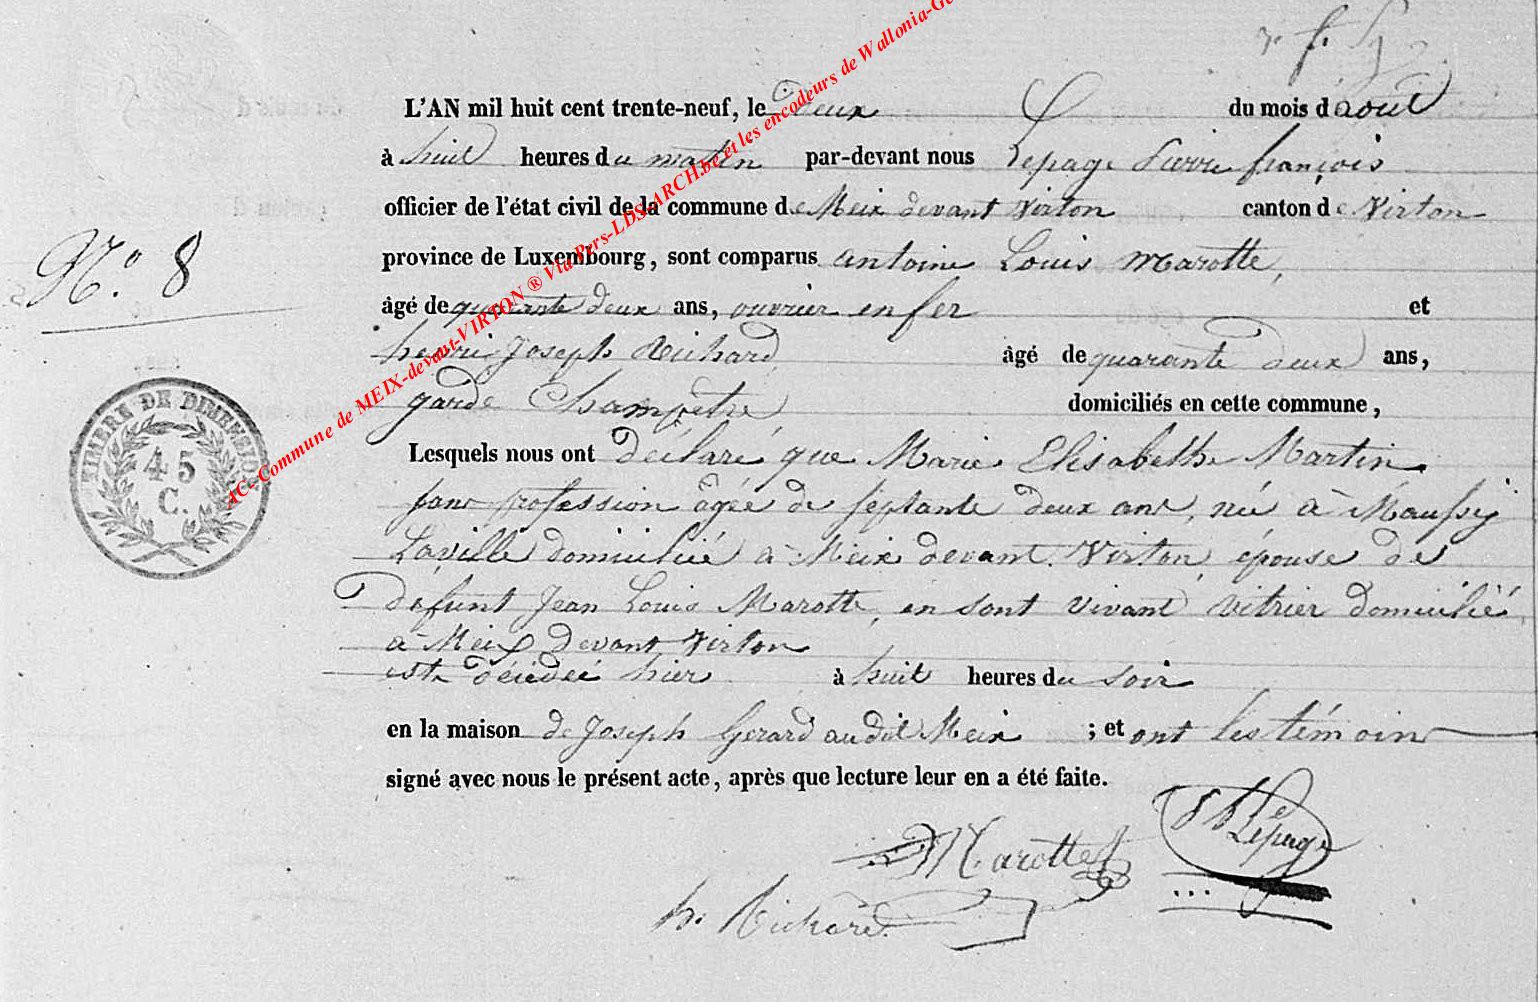 L'AN mil huit cent trente-neuf, le deux du mois d'aout
à huit heures du matin par-devant nous Lepage Pierre françois
officier de l'état civil de la commune de Meix devant Virton canton de Virton
province de Luxembourg, sont comparus antoine Louis marotte,
âgé de quarante deux ans, ouvrier en fer et
henri Joseph Richard âgé de quarante deux ans,
garde Champêtre, domiciliés en cette commune,
N.o 8
Lesquels nous ont déclaré que Marie Elisabethe Martin
sans profession âgée de septante deux ans, née à Maussÿ
Laville domiciliée à Meix devant Virton, épouse de
défunt Jean Louis Marotte, en sont vivant vitrier domicilié
à Meix devant Virton
est décédée hier à huit heures du soir
en la maison de Joseph Gerard audit Meix ; et ont les témoins
signé avec nous le présent acte, après que lecture leur en a été faite.
Marotte
Lepage
h. Richard
TIMBRE DE DIMENSION
45
C.
AC- Commune de MEIX-devant-VIRTON ® Via Pers-LDS-ARCH.be et les encodeurs de Wallonia-Ge